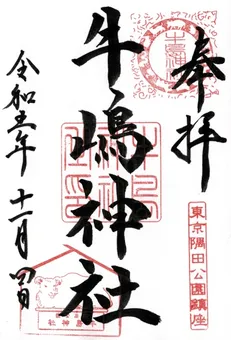 奉拝
東京隅田公園鎮座
牛嶋神社
令和五年十一月四日
牛嶋神社